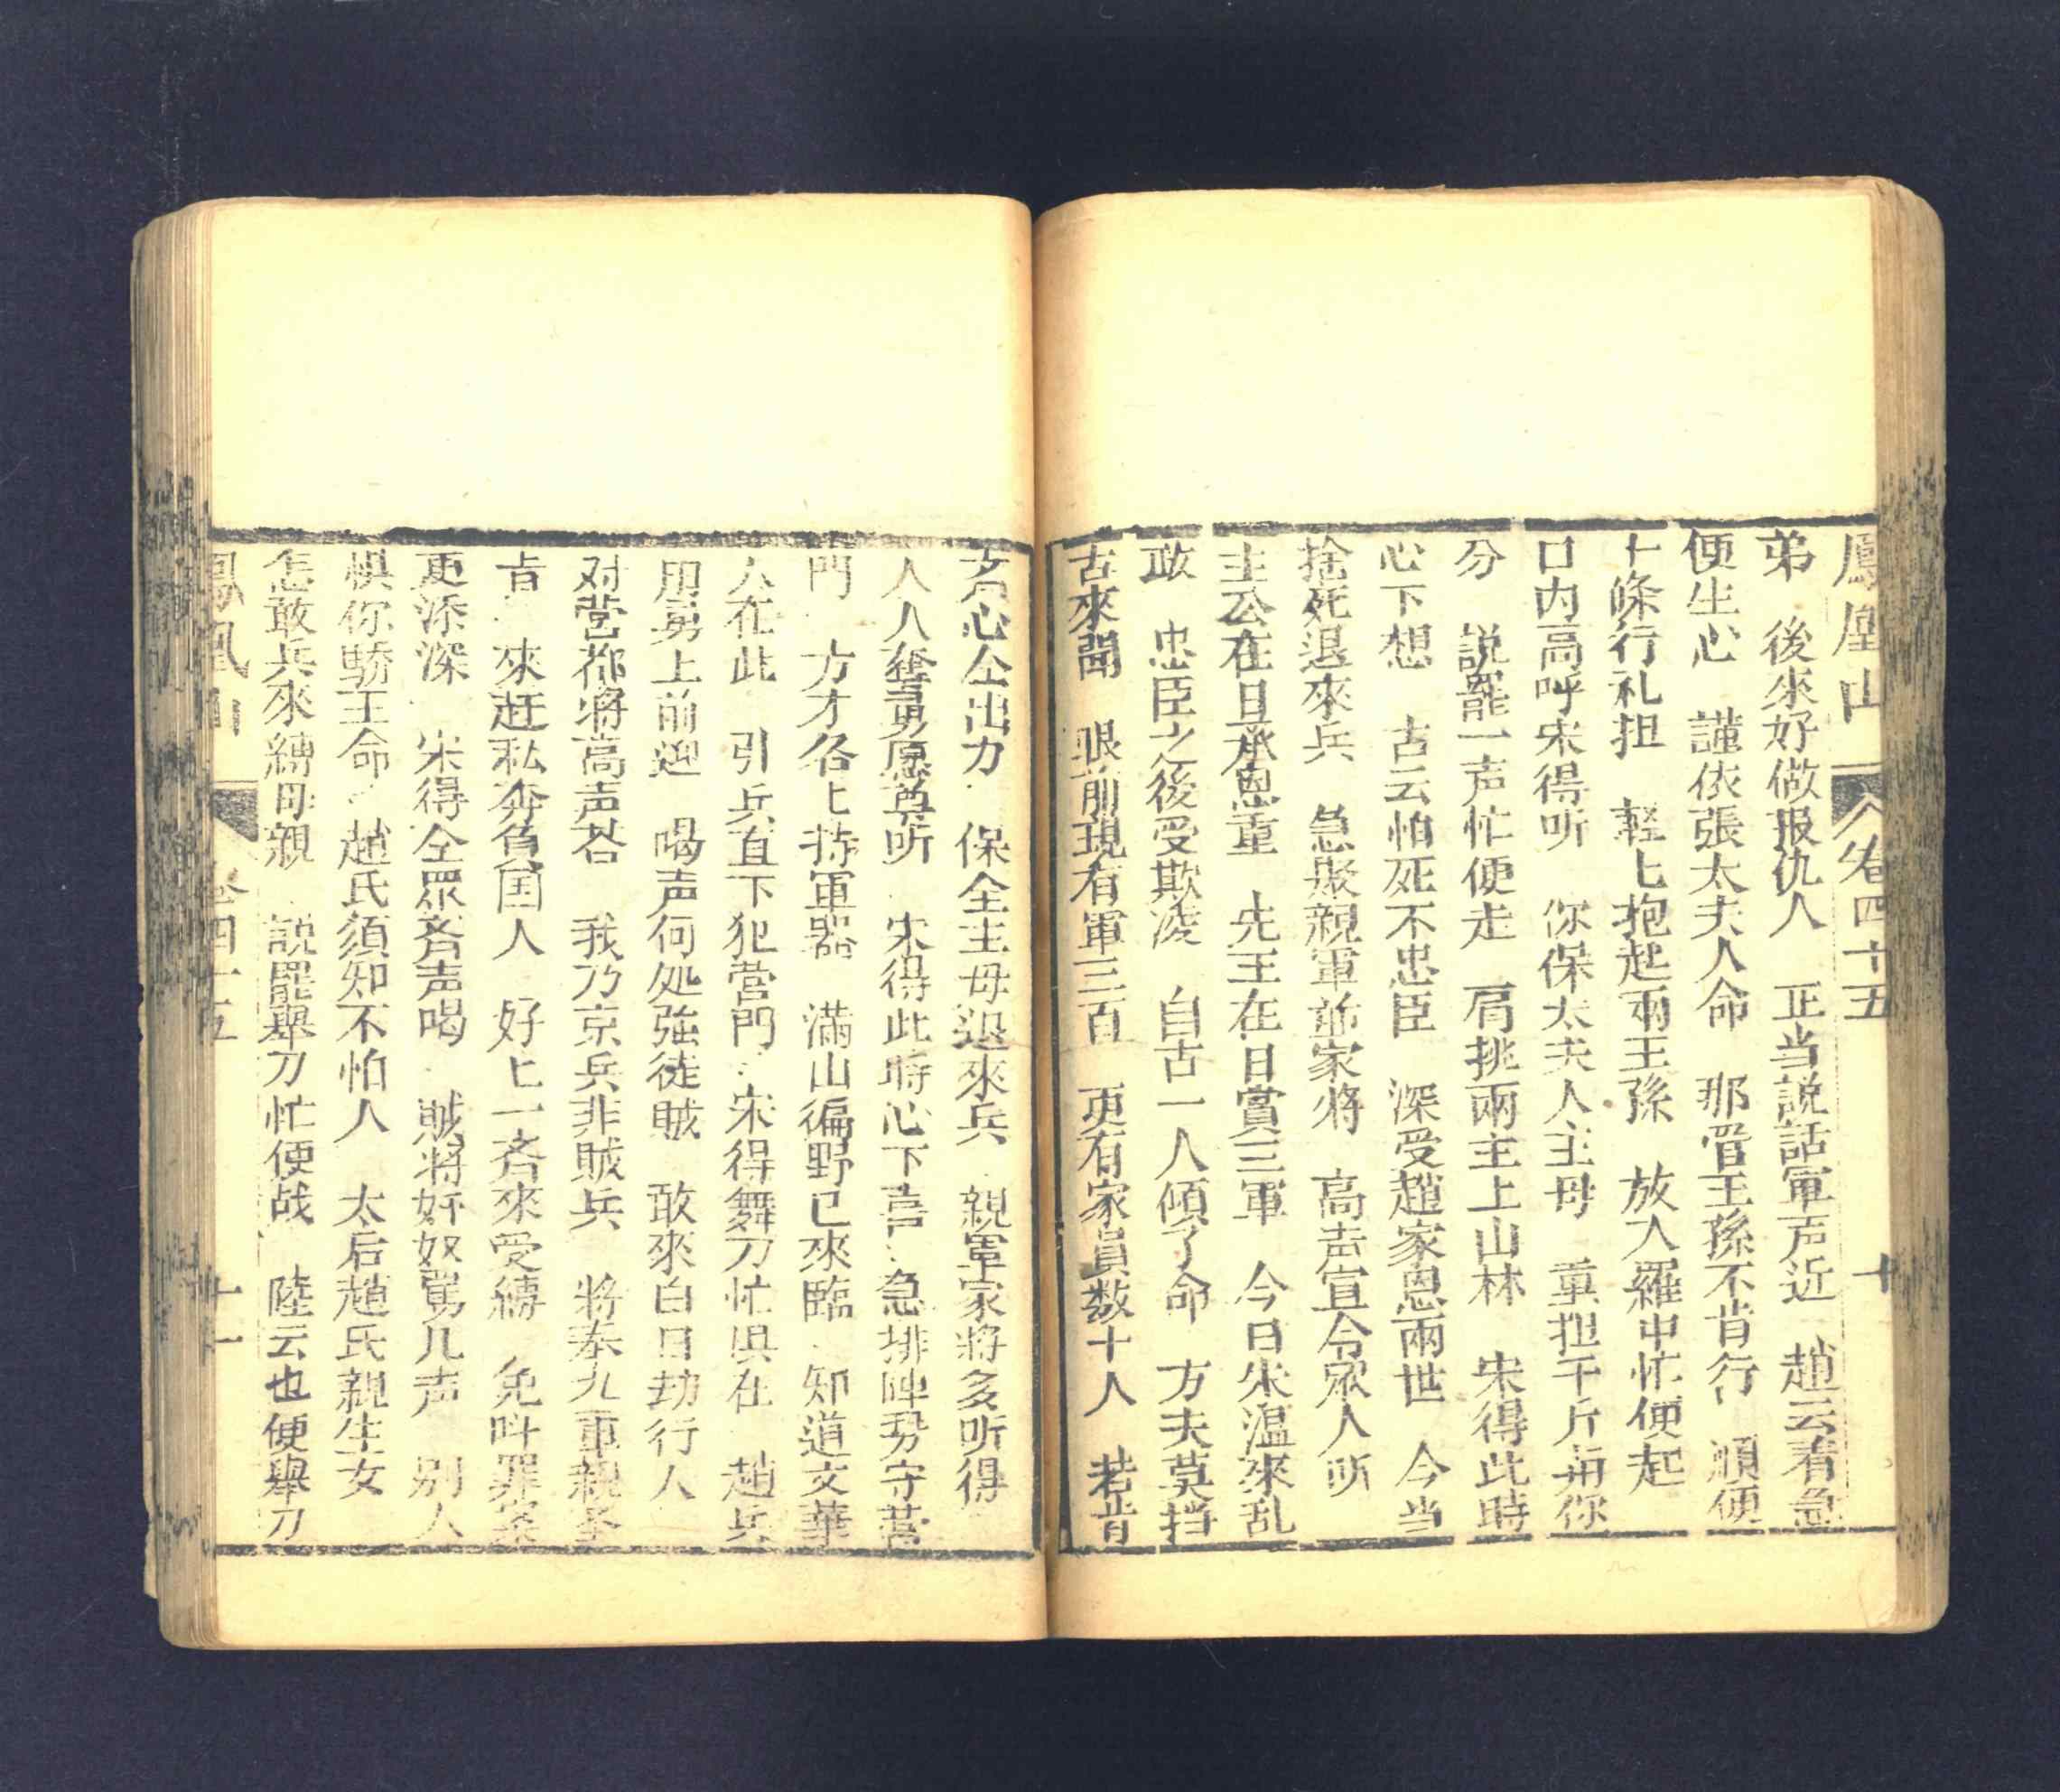 鳳凰山 卷四十五 十
弟 後來好做报仇人 正当説話軍声近 趙云看急
便生心 謹依張太夫人命 那管王孫不肯行 順便
十條行礼担 軽匕抱起兩王孫 放入羅中忙便起
口内高呼宋得听 你保太夫人主母 重担千斤再你
分 説罷一声忙便走 肩挑兩主上山林 宋得此時
心下想 古云怕死不忠臣 深受趙家恩兩世 今当
捨死退來兵 急聚親軍並家将 高声宣令眾人听
主公在日承恩重 先王在日賞三軍 今日朱温來乱
政 忠臣之後受欺凌 自古一人傾了命 方夫莫挡
古來聞 眼前現有軍三百 更有家員数十人 若肯
齐心仝出力 保全主母退來兵 親軍家将多听得
人人奮勇愿尊听 宋得此時心下喜 急排陣势守营
門 方才各匕持軍器 滿山徧野已來臨 知道文華
人在此 引兵直下犯营門 宋得舞刀忙俱在 趙兵
用勇上前迎 喝声何処強徒贼 敢來白日劫行人
对营都将高声答 我乃京兵非贼兵 将奉九重親圣
旨 來赶私奔負国人 好匕一斉來受縛 免呌罪案
更添深 宋得仝眾斉声喝 贼将奸奴罵几声 别人
惧你驕王命 趙氏須知不怕人 太后趙氏親生女
怎敢兵來縛母親 説罷舉刀忙便战 陸云也便舉刀
鳳凰山 卷四十五 十一